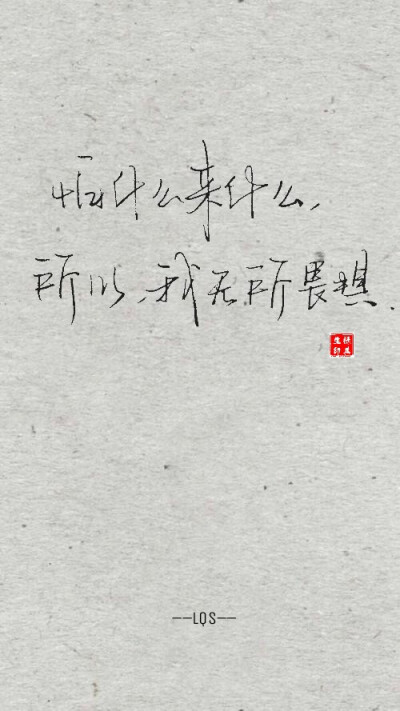 怕什么来什么,
所以,我无所畏惧.
——LQS——